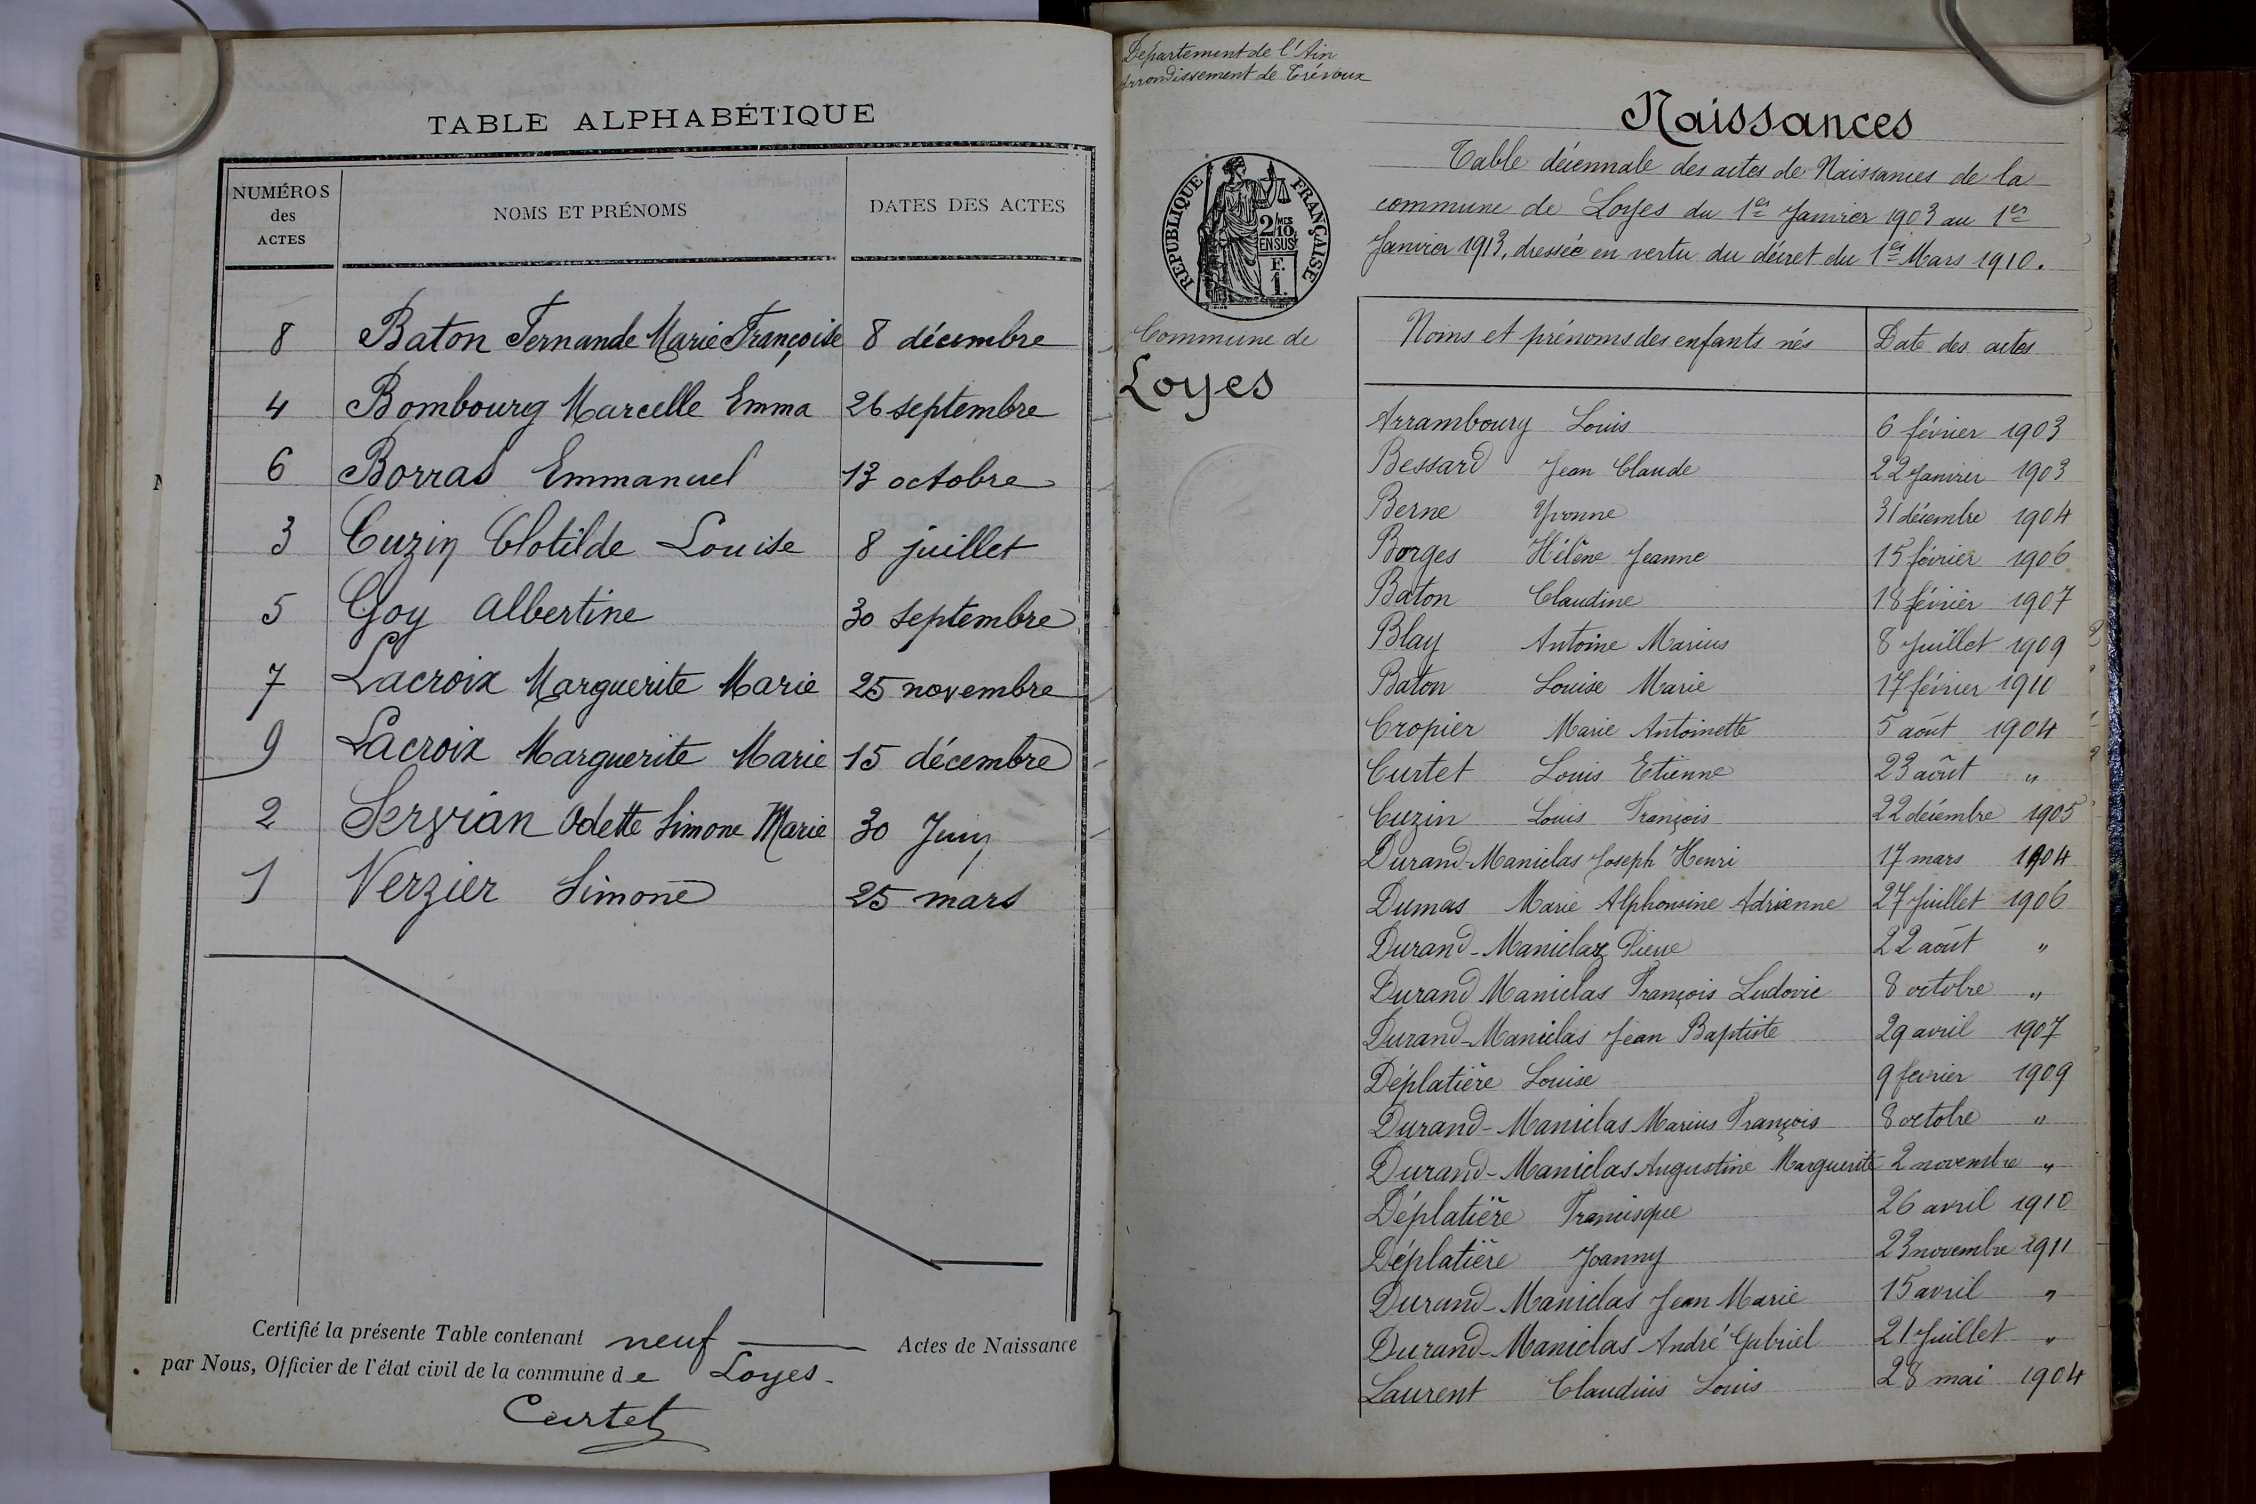 TABLE ALPHABÉTIQUE
NUMÉROS
des
ACTES
NOMS ET PRÉNOMS
DATES DES ACTES
8 Baton Fernande Marie Françoise 8 décembre
4 Bombourg Marcelle Emma 26 septembre
6 Borras Emmanuel 13 octobre
3 Cuzin Clotilde Louise 8 juillet
5 Goy Albertine 30 septembre
7 Lacroix Marguerite Marie 25 novembre
9 Lacroix Marguerite Marie 15 décembre
2 Servian Odette Simone Marie 30 Juin
1 Verzier Simone 25 mars
Certifié la présente Table contenant neuf Actes de Naissance
par Nous, Officier de l'état civil de la commune de Loyes.
Curtet
Département de l'Ain
Arrondissement de Trévoux
RÉPUBLIQUE FRANÇAISE
2/MES
10
EN SUS
F.
1.
Commune de
Loyes
Naissances
Table décennale des actes de Naissances de la
commune de Loyes du 1er Janvier 1903 au 1er
Janvier 1913, dressée en vertu du décret du 1er Mars 1910.
Noms et prénoms des enfants nés Date des actes
Arrambourg Louis 6 février 1903
Bessard Jean Claude 22 Janvier 1903
Berne Yvonne 31 décembre 1904
Borges Hélène Jeanne 15 février 1906
Baton Claudine 18 février 1907
Blay Antoine Marius 8 Juillet 1909
Baton Louise Marie 17 février 1910
Cropier Marie Antoinette 5 août 1904
Curtet Louis Etienne 23 août "
Cuzin Louis François 22 décembre 1905
Durand-Maniclas Joseph Henri 17 mars 1904
Dumas Marie Alphonsine Adrienne 27 Juillet 1906
Durand-Maniclas Pierre 22 août "
Durand Maniclas François Ludovic 8 octobre "
Durand-Maniclas Jean Baptiste 29 avril 1907
Déplatière Louise 9 février 1909
Durand-Maniclas Marius François 8 octobre "
Durand-Maniclas Augustine Marguerite 2 novembre "
Déplatière Francisque 26 avril 1910
Déplatière Joanny 23 novembre 1911
Durand-Maniclas Jean Marie 15 avril "
Durand-Maniclas André Gabriel 21 Juillet "
Laurent Claudius Louis 28 mai 1904